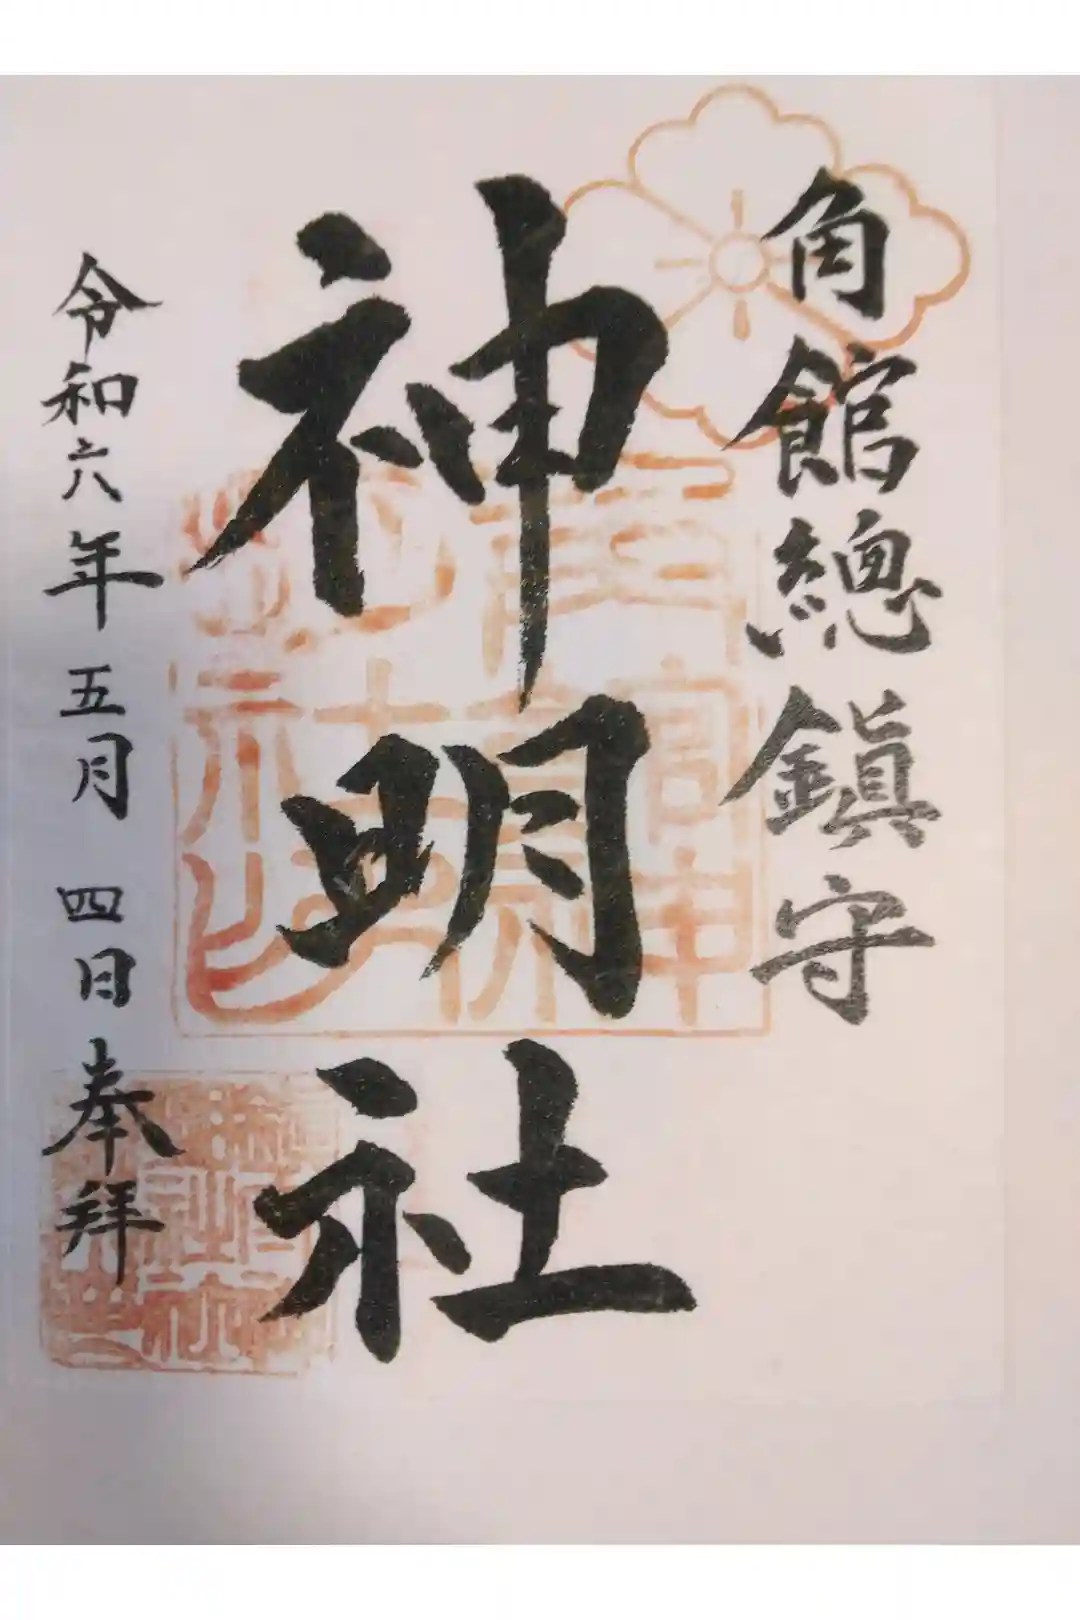 角館總鎮守
神明社
令和六年五月四日奉拝